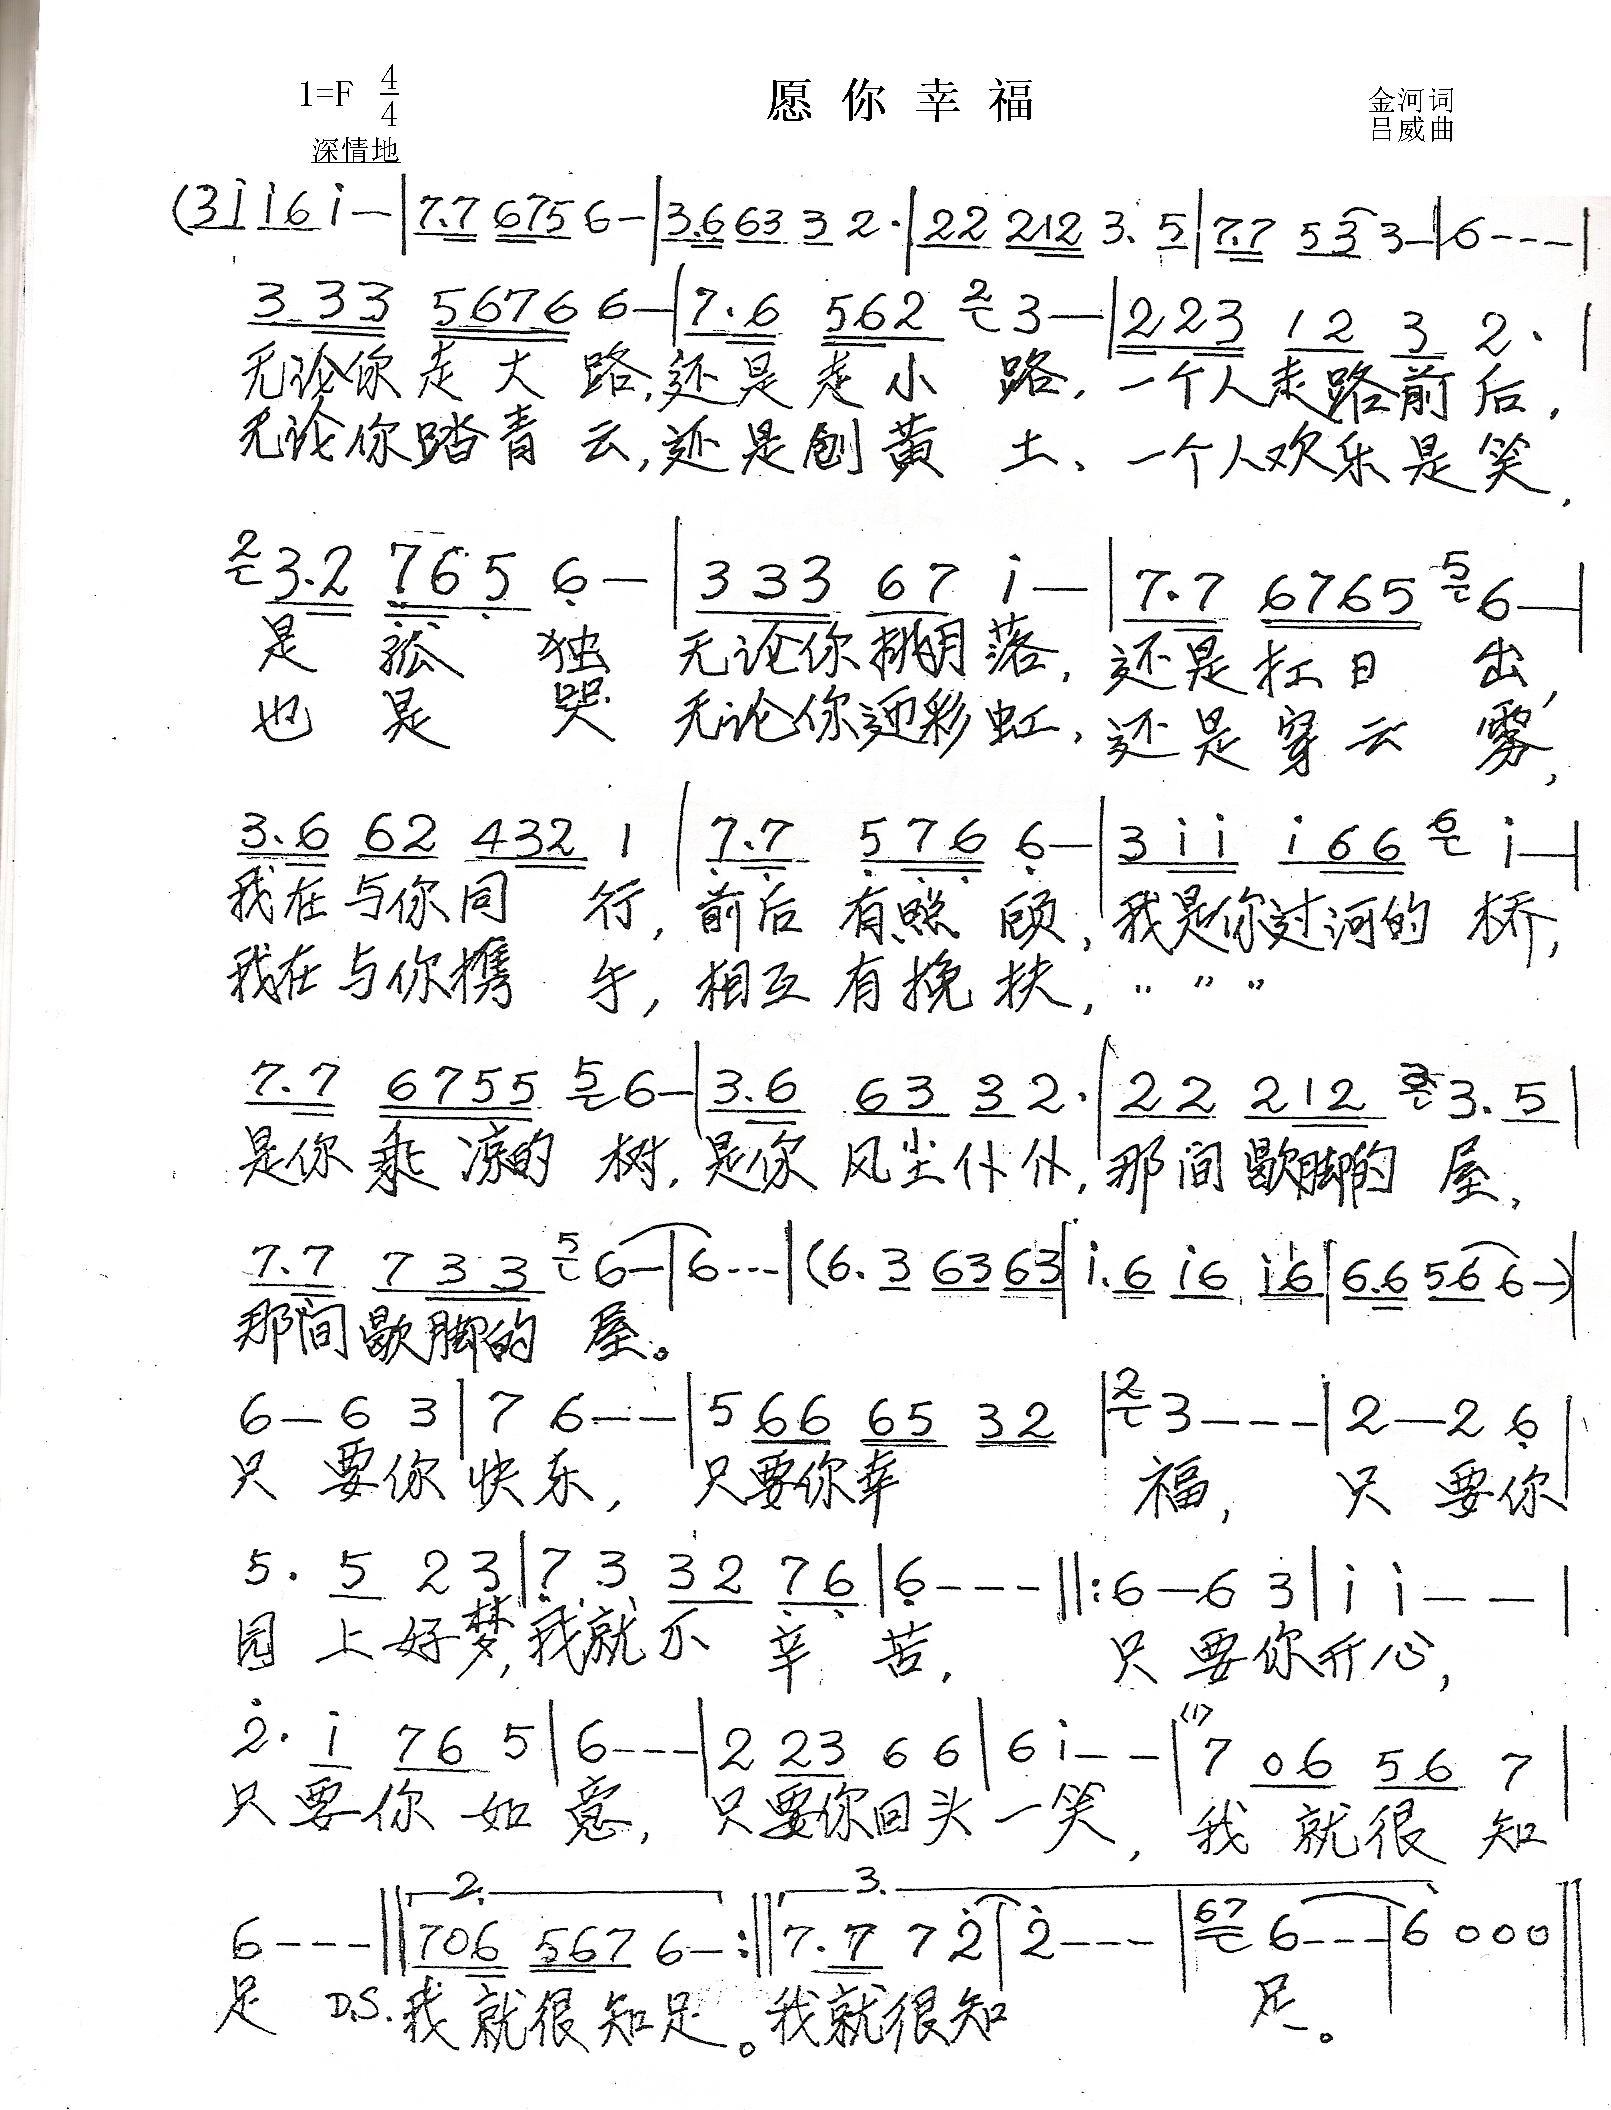 1=F 4/4 愿你幸福 金河词
深情地 吕威曲
(3i i6 i—|7.7 6756—|3.6 63 3 2.|22 212 3. 5|7.7 533—|6---|
3 33 5676 6—|7.6 562 2 3—|223 12 3 2.|
无论你走大路,还是走小路,一个人走路前后,
无论你踏青云,还是创黄土、一个人欢乐是笑,
2 3.2 765 6—|333 67 i—|7.7 6765 5 6—|
是孤独 无论你挑月落,还是扛日出,
也是哭 无论你迎彩虹,还是穿云雾,
3.6 62 432 1|7.7 576 6—|3ii i66 6 i—|
我在与你同行,前后有照顾,我是你过河的桥,
我在与你携手,相互有挽扶,〃 〃 〃
7.7 6755 5 6—|3.6 63 3 2.|22 212 3.5|
是你乘凉的树,是你风尘仆仆,那间歇脚的屋,
7.7 733 5 6—|6---|(6.3 6363|i.6 i6 i6|6.6 56 6—)|
那间歇脚的屋。
6—6 3|7 6——|5 66 65 32|2 3---|2—2 6|
只要你快乐,只要你幸福,只要你
5. 5 2 3|7 3 32 76|6---‖:6—6 3|i i——|
圆上好梦,我就不辛苦,只要你开心,
2. i 76 5|6---|2 23 6 6|6 i--|(1) 7 06 56 7|
只要你如意,只要你回头一笑,我就很知
6---‖2. 706 567 6—:‖3. 7.7 7 2|2---|67 6---|6 000‖
足 D.S.我就很知足。我就很知足。